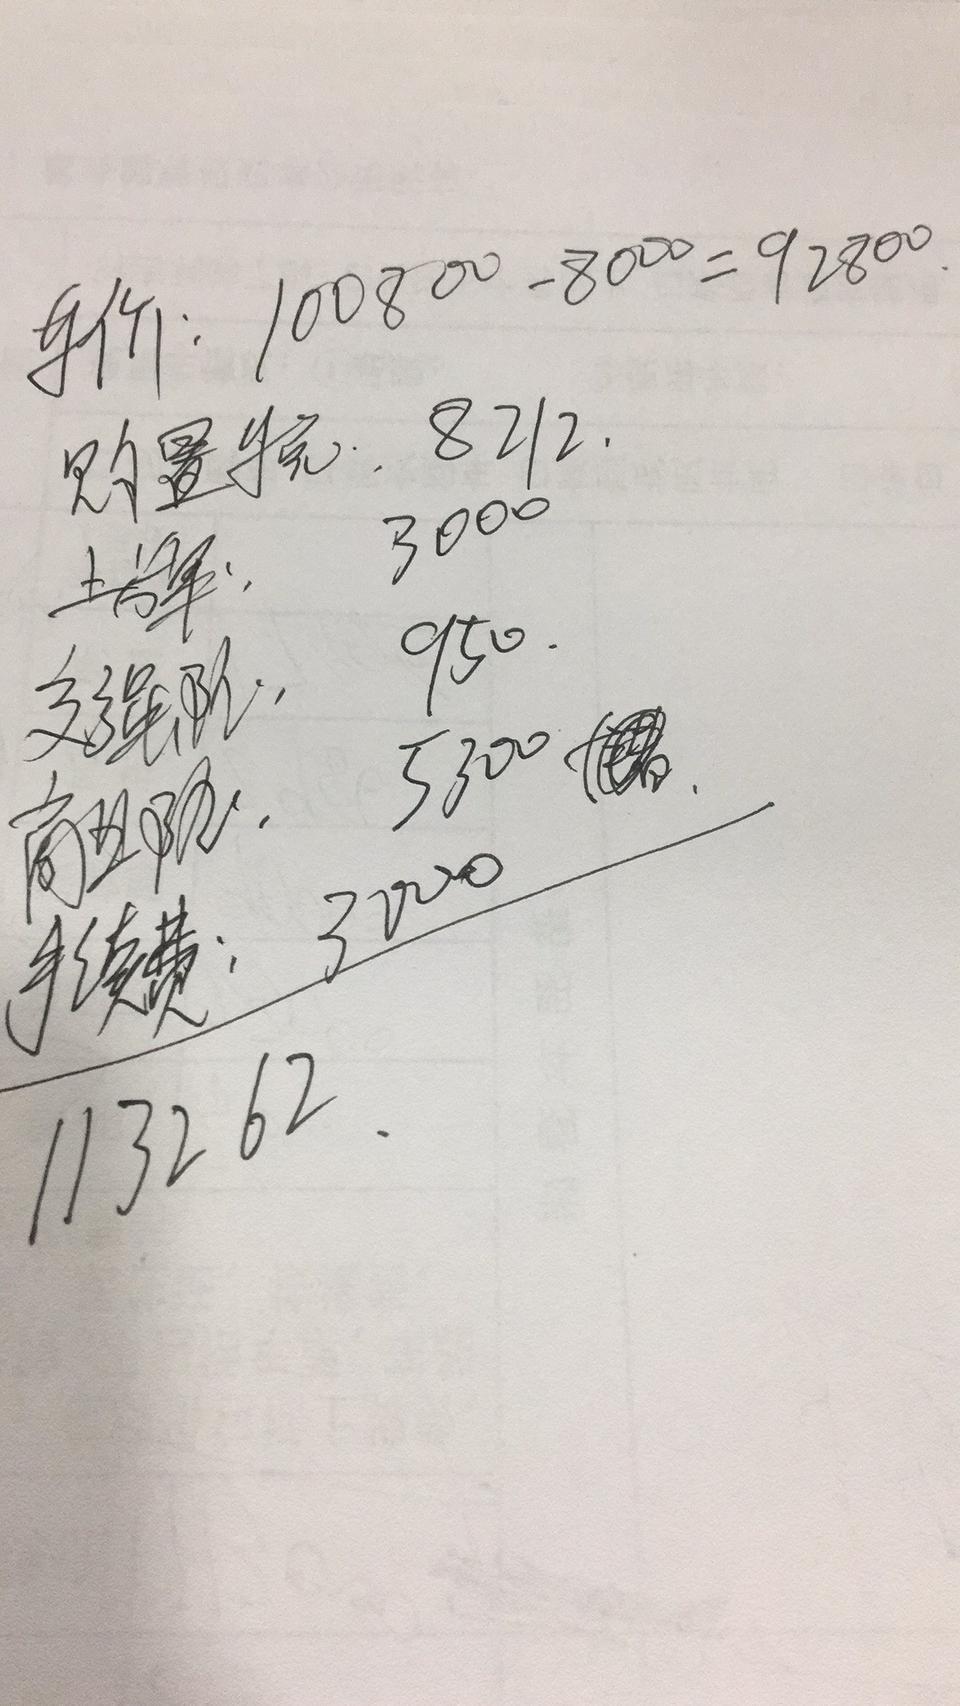 车价: 100800-8000=92800.
购置税: 8212.
上牌: 3000
交强险: 950.
商业险: 5300
手续费: 3000
113262.